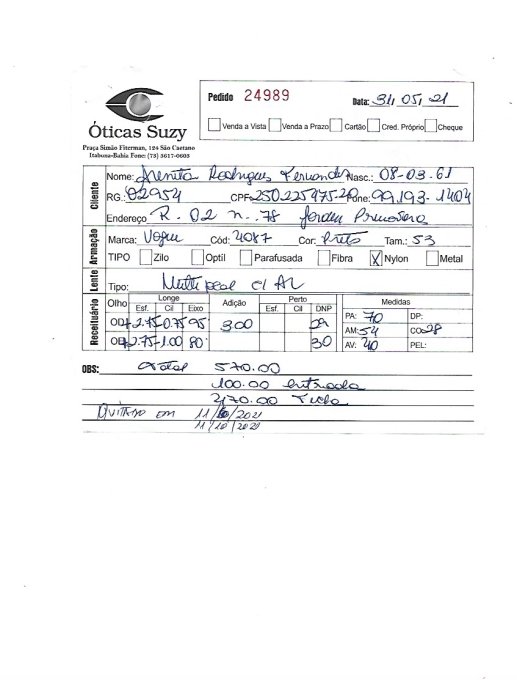 Óticas Suzy
Praça Simão Fiterman, 124 São Caetano
Itabuna-Bahia Fone: (73) 3617-0603
Pedido 24989 Data: 31/05/21
Venda a Vista Venda a Prazo Cartão Cred. Próprio Cheque
Cliente
Nome: Rodrigues Nasc.: 08-03-61
RG.: 02954 CPF: 250225975-20 Fone: 99.193-1404
Endereço R. 02 n. 78 Jardim Primavera
Armação
Marca: Vogue Cód: 4087 Cor: Preto Tam.: 53
TIPO Zilo Optil Parafusada Fibra X Nylon Metal
Lente
Tipo: Multifocal c/ AR
Receituário
Olho Longe Adição Perto Medidas
Esf. Cil Eixo Esf. Cil DNP
OD +2.75 -0.75 95 3.00 29 PA: 70 DP:
OE +2.75 -1.00 80 30 AM: 54 CO: 28
AV: 40 PEL:
OBS: Total 570.00
100.00 entrada
470.00
Quitado em 11/10/2021
11/10/2021